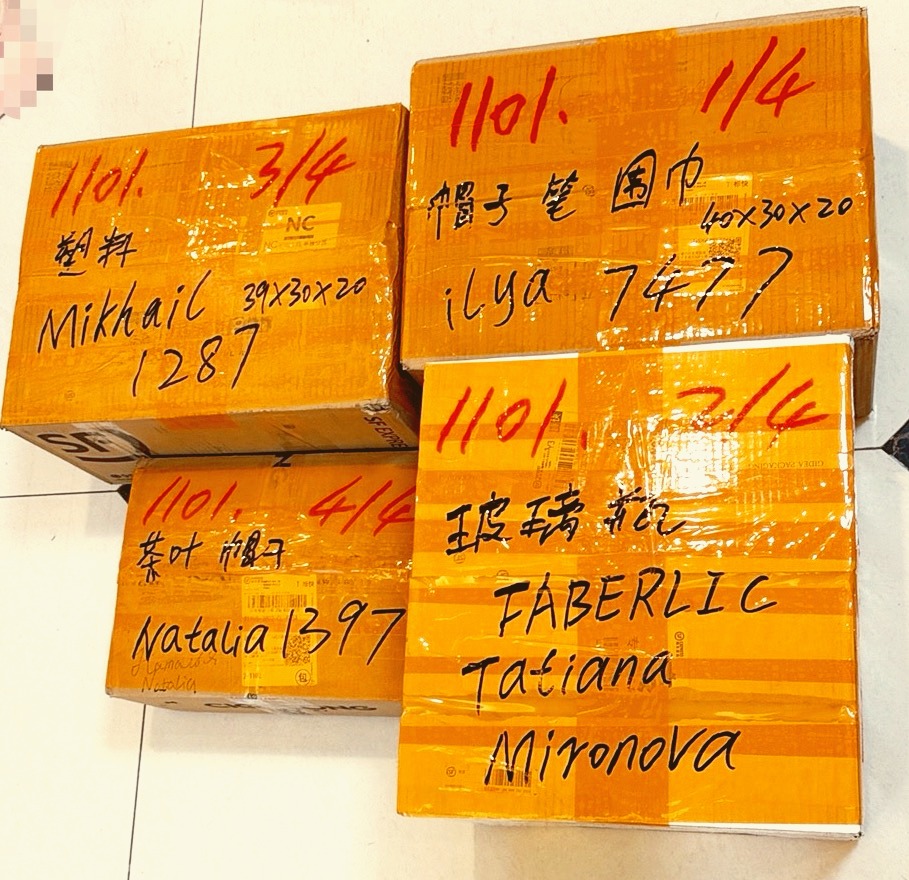 1101. 3/4
NC
塑料
39X30X20
Mikhail
1287
SF EXPRE
1101. 1/4
帽子 笔 围巾
40X30X20
ilya 7477
1101. 4/4
茶叶 帽子
Natalia 1397
Natalia
1101. 2/4
玻璃瓶
FABERLIC
Tatiana
Mironova